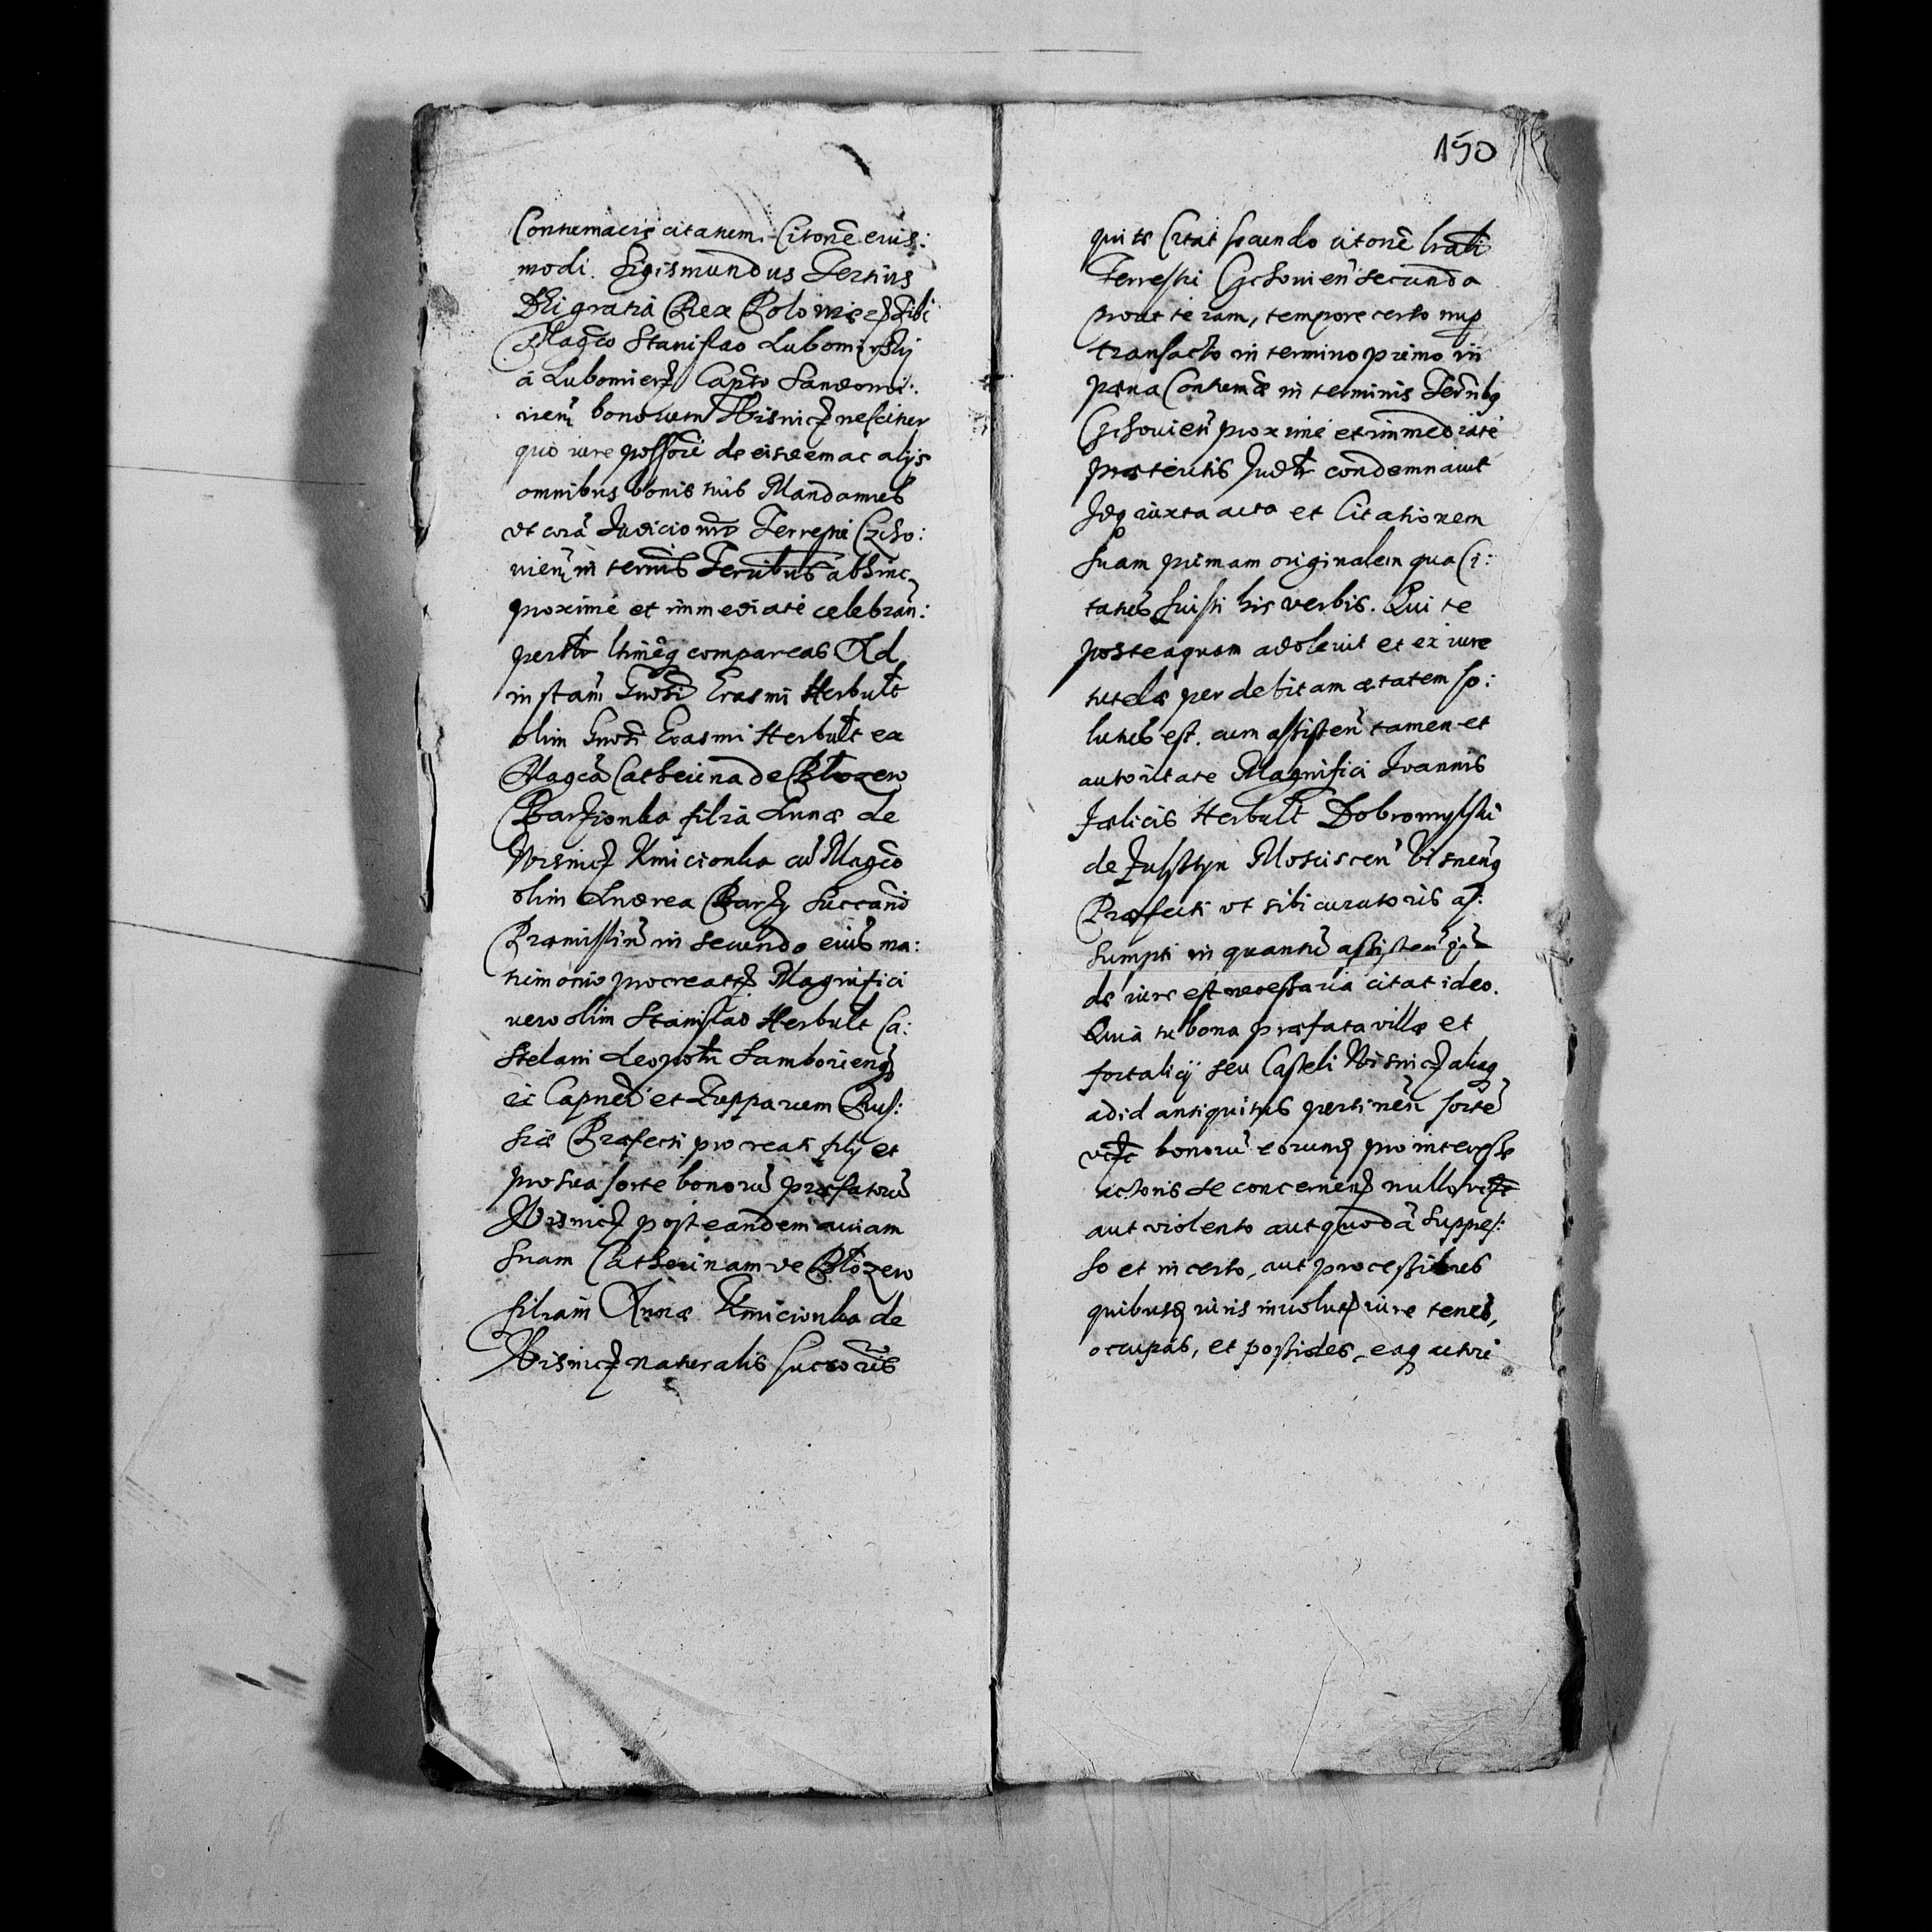 Contumacis citatum. Citonē eius:
modi. Sigismundus Tertius
DEi gratia Rex Poloniæ Tibi
Magco Stanislao Lubomirskÿ
â Lubomierz Capto Sandomi:
rien bonorum Wisnicz nesciter
quo iure possori de eisdem ac alijs
omnibus bonis tuis Mandamus
vt corā Judicio nrō Terrestri Czcho:
uien in termis Terribus abhinc
proximé et immediaté celebran:
compareas Ad
instam Gnosi Erasmi Herbult
olim Gnosi Erasmi Herbult ex
Magca Catherina de Błozew
Barzionka filia Annæ de
Wisnicz Kmicionka cū Magco
olim Andrea Barzy Succam
Præmislien in secundo eius ma:
trimonio procreatæ Magnifici
vero olim Stanislao Herbult Ca:
stelani Leopoln Samborieng
et Zupparum Rus:
siæ Præfecti procreati filij et
pro sua sorte bonorū præfatorū
Wisnicz post eandem auiam
suam Catherinam de Błozew
filiam Annæ Kmicionka de
Wisnicz naturalis succoris
150
qui te Citat secundo citonē
Terrestri Czchouien secunda
prout te iam, tempore certo nup
transacto in termino primo in
pæna Contumā in terminis Ternibg
Czchouien proximé et immediaté
præteritis Judtr condemnauit
Idq iuxta acta et Citationem
suam primam originalem qua Ci:
tatus fuisti his verbis. Qui te
posteaquam adoleuit et ex iure
tutelæ per debitam ætatem so:
lutus est. cum assisten tamen et
autoritate Magnifici Joannis
Fælicis Herbult Dobromylski
de Fulstyn Moscicen Wisneng
Præfecti vt sibi curatoris as:
sumpti in quantū assisten
de iure est necessaria citat ideo.
Quia tu bona præfata villæ et
fortalicÿ seu Casteli Wisnicz aliaq
ad id antiquitus pertinen sorte
bonorū eorundē pro interesse
actoris se concernen nullo
aut violento aut quodā suppres:
so et incerto, aut processibus
quibusq iuris inuoluto iure tenes,
occupas, et possides, eaq actori